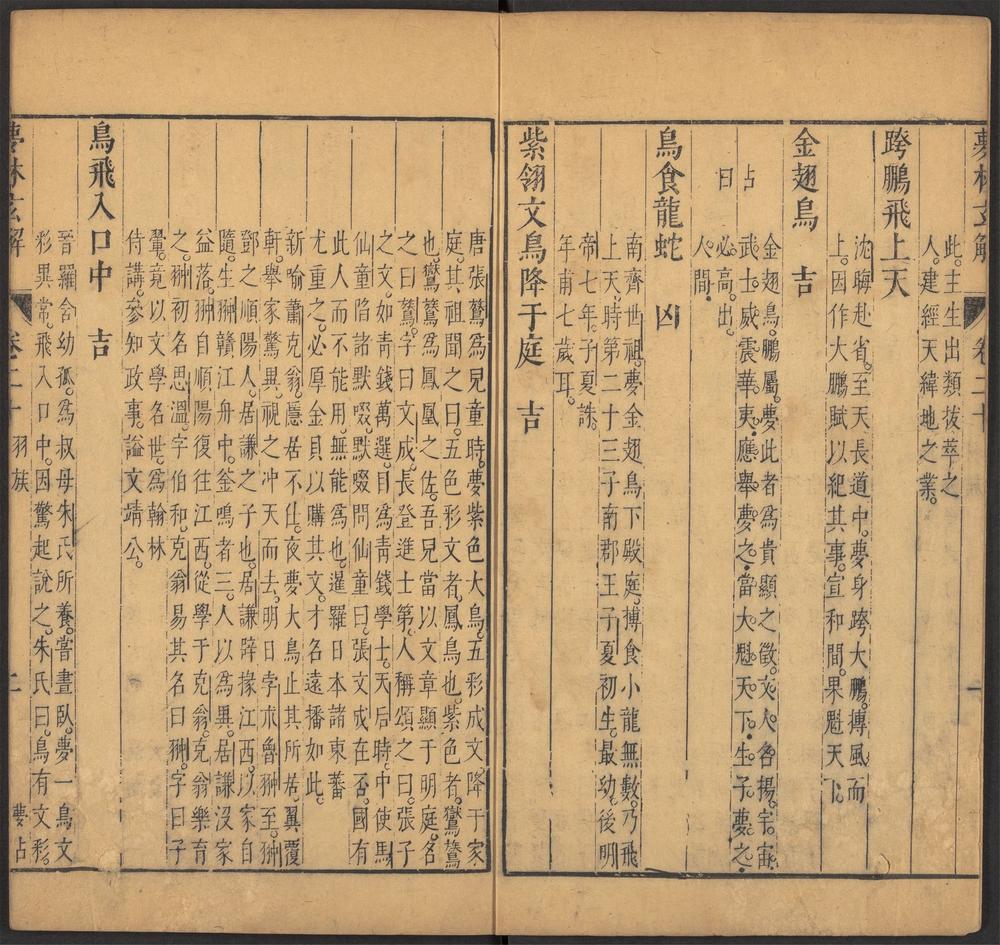 夢林玄解 卷二十 一
此主生出類拔萃之
人建經天緯地之業。
跨鵬飛上天
沈晦赴省。至天長道中。夢身跨大鵬。摶風而
上。因作大鵬賦以紀其事。宣和間。果魁天下。
金翅鳥 吉
占曰
金翅鳥。鵬屬。夢此者爲貴顯之徵。文人名揚宇宙。
武士威震華夷。應舉夢之。當大魁天下。生子夢之。
必高出
人間。
鳥食龍蛇 凶
南齊世祖。夢金翅鳥下殿庭。搏食小龍無數。乃飛
上天。時第二十三子南郡王子夏初生。最幼。後明
帝七年。子夏誅。
年甫七歲耳。
紫翎文鳥降于庭 吉
唐張鷟爲兒童時。夢紫色大鳥。五彩成文。降于家
庭。其祖聞之曰。五色彩文者。鳳鳥也。紫色者。鸑鷟
也。鸑鷟爲鳳凰之佐。吾兒當以文章顯于明庭。名
之曰鷟。字曰文成。長登進士第。人稱頌之曰。張子
之文。如靑錢萬選。目爲靑錢學士。天后時。中使馬
仙童陷諸默啜。默啜問仙童曰。張文成在否。國有
此人而不能用。無能爲也。暹羅日本諸東蕃
尤重之。必厚金貝以購其文。才名遠播如此。
新喻蕭克翁。隱居不仕。夜夢大鳥止其所居。翼覆
軒。舉家驚異。視之冲天而去。明日孛朮魯翀至。翀
鄧之順陽人。居謙之子也。居謙辟掾江西。以家自
隨。生翀贛江舟中。釜鳴者三。人以爲異。居謙沒家
益落。翀自順陽復往江西。從學于克翁。克翁樂育
之。翀初名思溫。字伯和。克翁易其名曰翀。字曰子
翬。竟以文學名世。爲翰林
侍講。參知政事。謚文靖公。
鳥飛入口中 吉
晉羅含幼孤。爲叔母朱氏所養。嘗晝臥。夢一鳥文
彩異常。飛入口中。因驚起說之。朱氏曰。鳥有文彩。
夢林玄解 卷二十 羽族 二 夢占